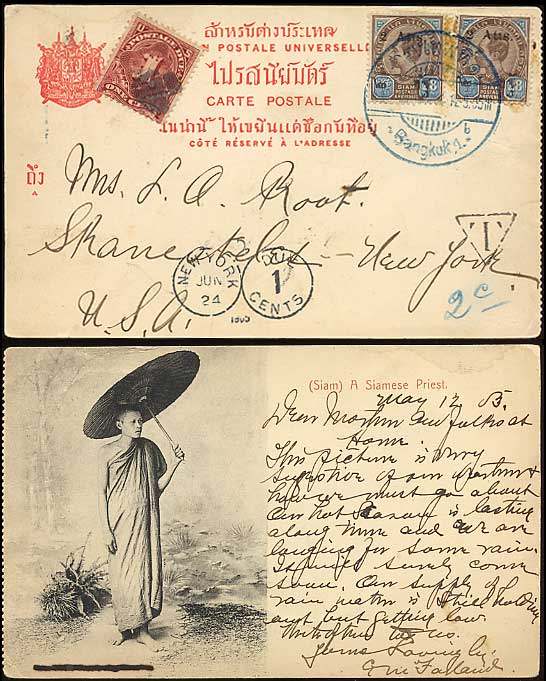 สำหรับต่างประเทศ
N POSTALE UNIVERSELLE
ไปรสนียบัตร์
CARTE POSTALE
ในน่านี้ ให้เขียนแต่ชื่อกับที่อยู่
CÔTÉ RÉSERVÉ À L'ADRESSE
ถึง
A
ONE CENT
SIAM
SIAM
Bangkok 1.
b
Mrs. L. A. Root.
Skaneateles - New York
U.S.A.
NEW YORK
JUN
24
DUE
1
CENTS
1905
T
2c
(Siam) A Siamese Priest.
May 12 05.
Dear Mother and folks at
Home.
This picture is very
suggestive of our weather &
how we must go about
Our hot season is lasting
along now and we are
looking for some rain.
It must surely come
soon. Our supply of
rain water is still holding
out but getting low.
Yours Lovingly.